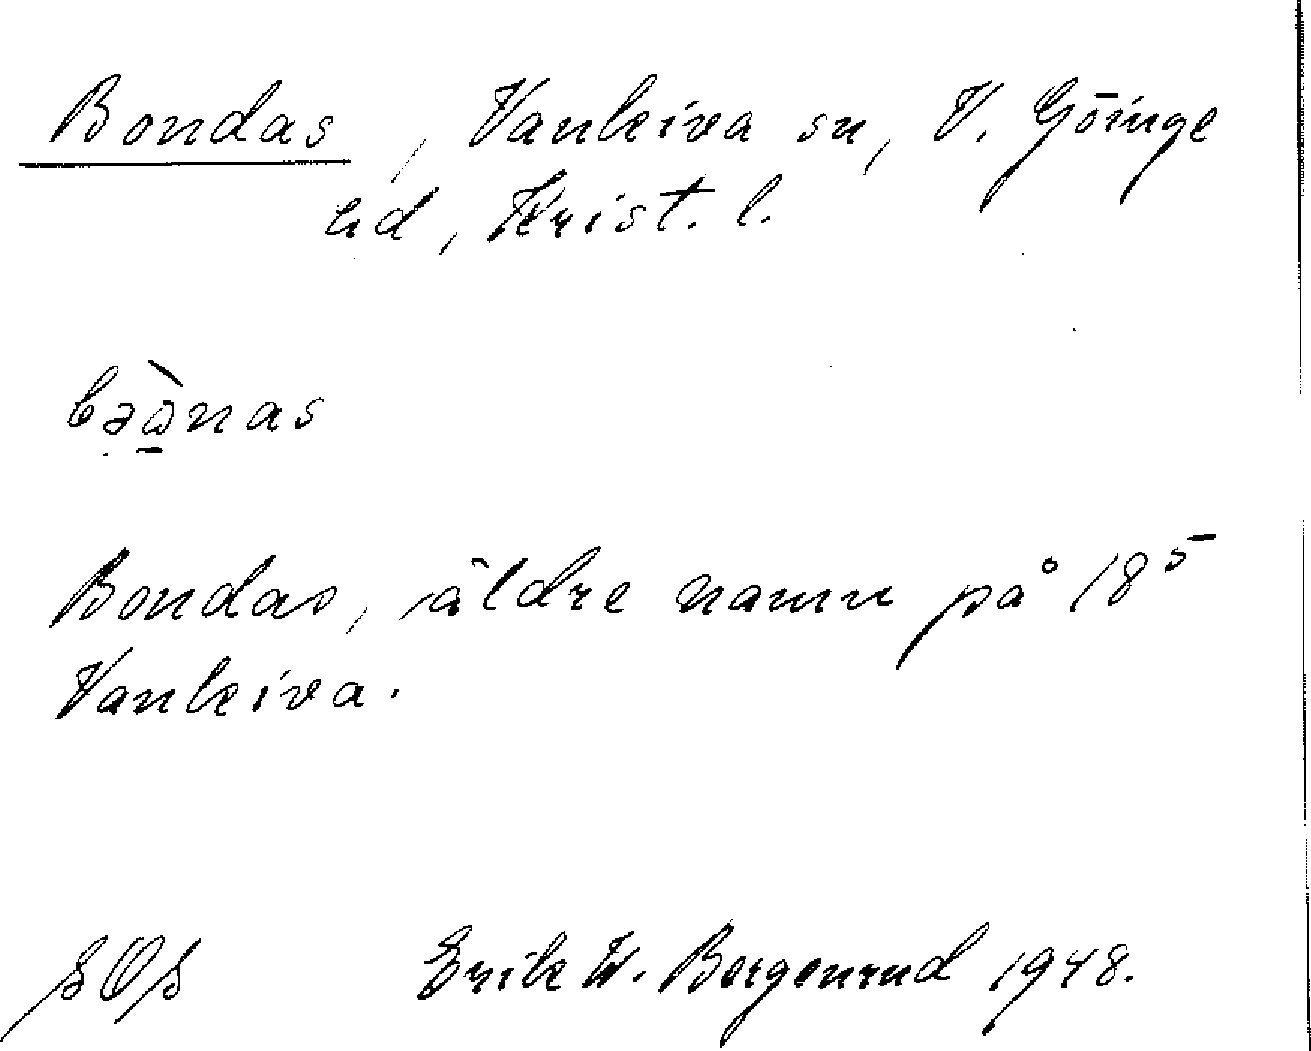 Bondas, Vankiva sn, V. Göinge
hd, Krist. l.
bə̣ὼ̱nas
Bondas, äldre namn på 18⁵
Vankiva.
Erik W. Bergenrud 1948.